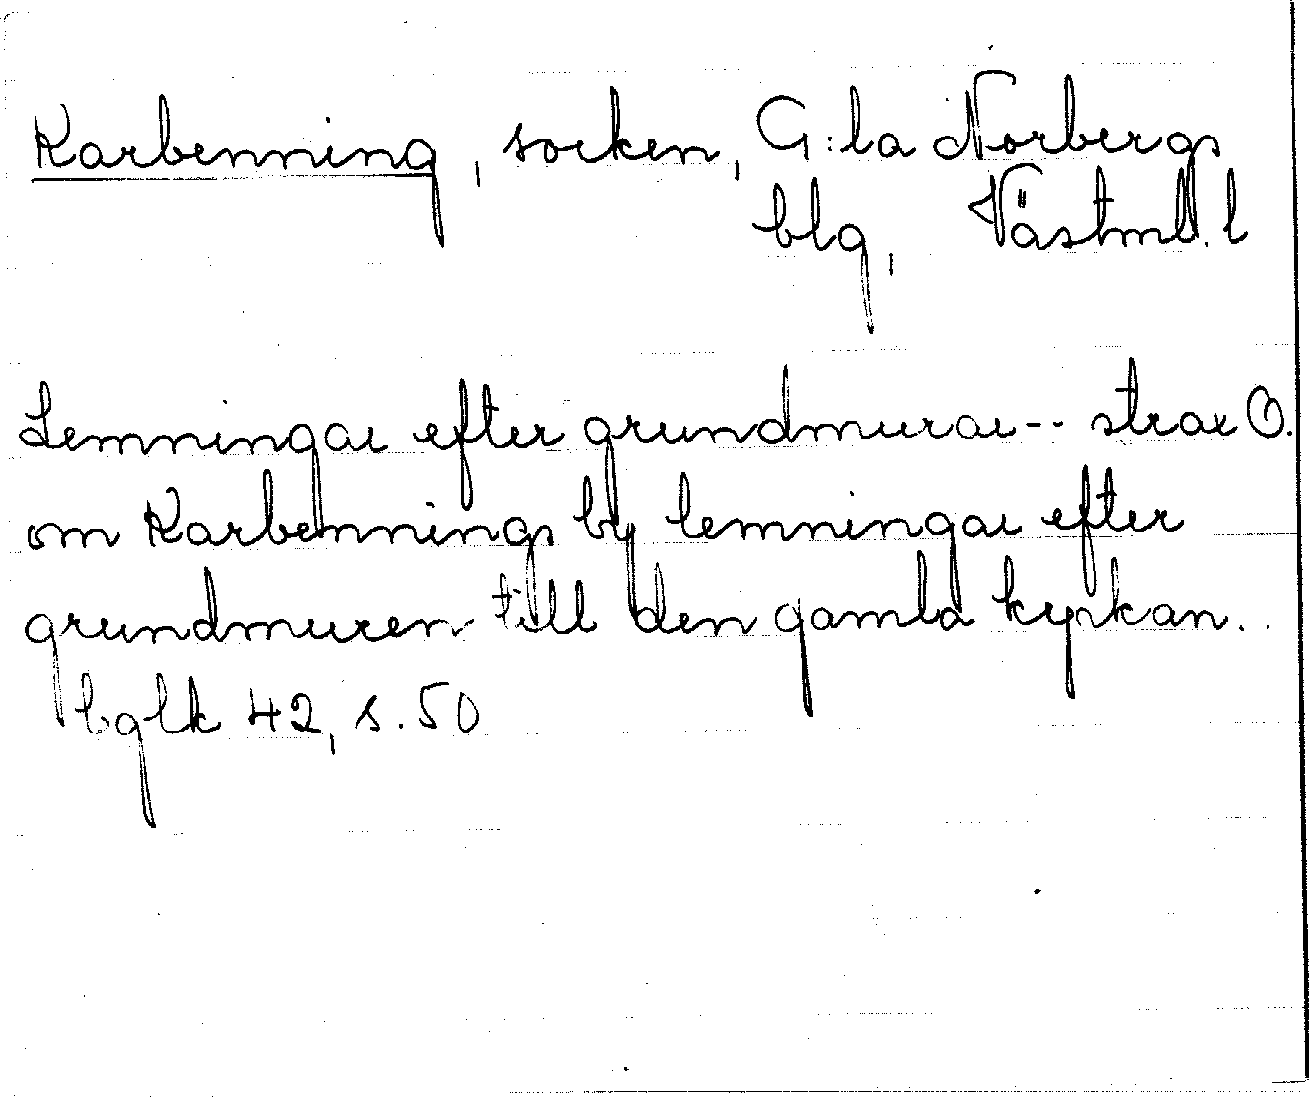 Karbenning, socken, G:la Norbergs
blg, Västml. l
Lemningar efter grundmurar-- strax O.
om Karbennings by lemningar efter
grundmuren till den gamla kyrkan..
bglk 42, s. 50